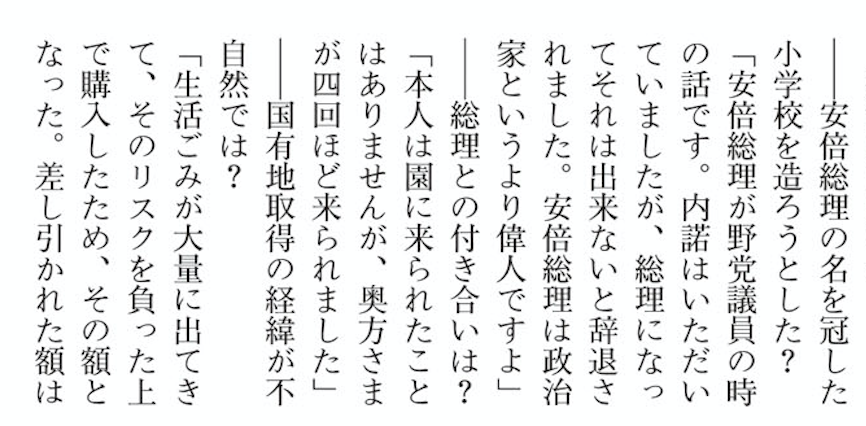 ――安倍総理の名を冠した
小学校を造ろうとした？
「安倍総理が野党議員の時
の話です。内諾はいただい
ていましたが、総理になっ
てそれは出来ないと辞退さ
れました。安倍総理は政治
家というより偉人ですよ」
――総理との付き合いは？
「本人は園に来られたこと
はありませんが、奥方さま
が四回ほど来られました」
――国有地取得の経緯が不
自然では？
「生活ごみが大量に出てき
て、そのリスクを負った上
で購入したため、その額と
なった。差し引かれた額は